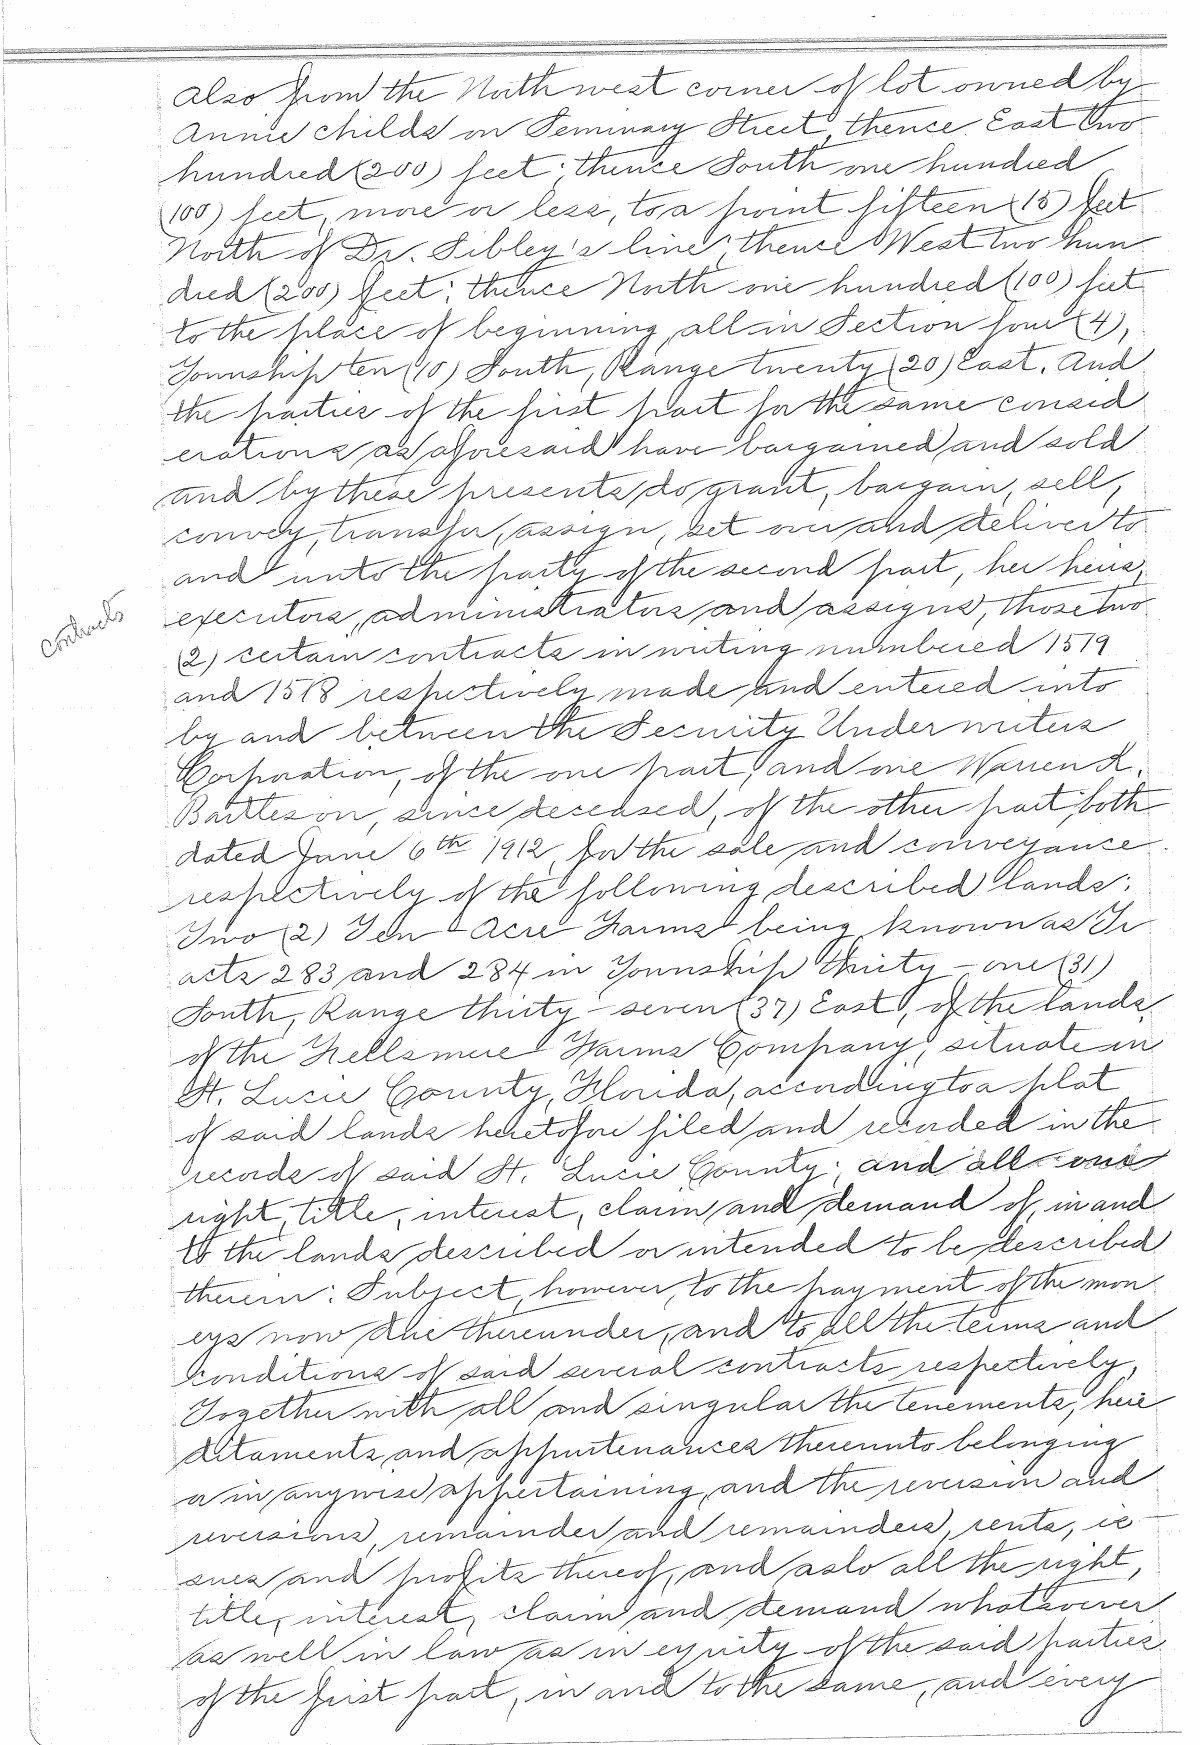 also from the North west corner of lot owned by
Annie Childs on Seminary Street, thence East two
hundred (200) feet; thence South one hundred
(100) feet, more or less, to a point fifteen (15) feet
North of Dr. Sibley's line; thence West two hun
dred (200) feet; thence North one hundred (100) feet
to the place of beginning, all in Section four (4),
Township ten (10) South, Range twenty (20) East. And
the parties of the first part for the same consid
erations as aforesaid have bargained and sold
and by these presents do grant, bargain, sell,
convey, transfer, assign, set over and deliver to
and unto the party of the second part, her heirs,
executors, administrators and assigns, those two
contracts
(2) certain contracts in writing numbered 1579
and 1578 respectively made and entered into
by and between the Security Underwriters
Corporation, of the one part, and one Warren K.
Bartleson, since deceased, of the other part, both
dated June 6th 1912, for the sale and conveyance
respectively of the following described lands:
Two (2) Ten Acre Farms being known as Tr
acts 283 and 284 in Township thirty-one (31)
South, Range thirty-seven (37) East, of the lands
of the Fellsmere Farms Company, situate in
St. Lucie County, Florida, according to a plat
of said lands heretofore filed and recorded in the
records of said St. Lucie County; and all our
right, title, interest, claim and demand of, in and
to the lands described or intended to be described
therein: Subject, however, to the payment of the mon
eys now due thereunder, and to all the terms and
conditions of said several contracts respectively,
Together with all and singular the tenements, here
ditaments and appurtenances thereunto belonging
or in anywise appertaining, and the reversion and
reversions, remainder and remainders, rents, is-
sues and profits thereof, and aslo all the right,
title, interest, claim and demand whatsoever
as well in law as in equity of the said parties
of the first part, in and to the same, and every